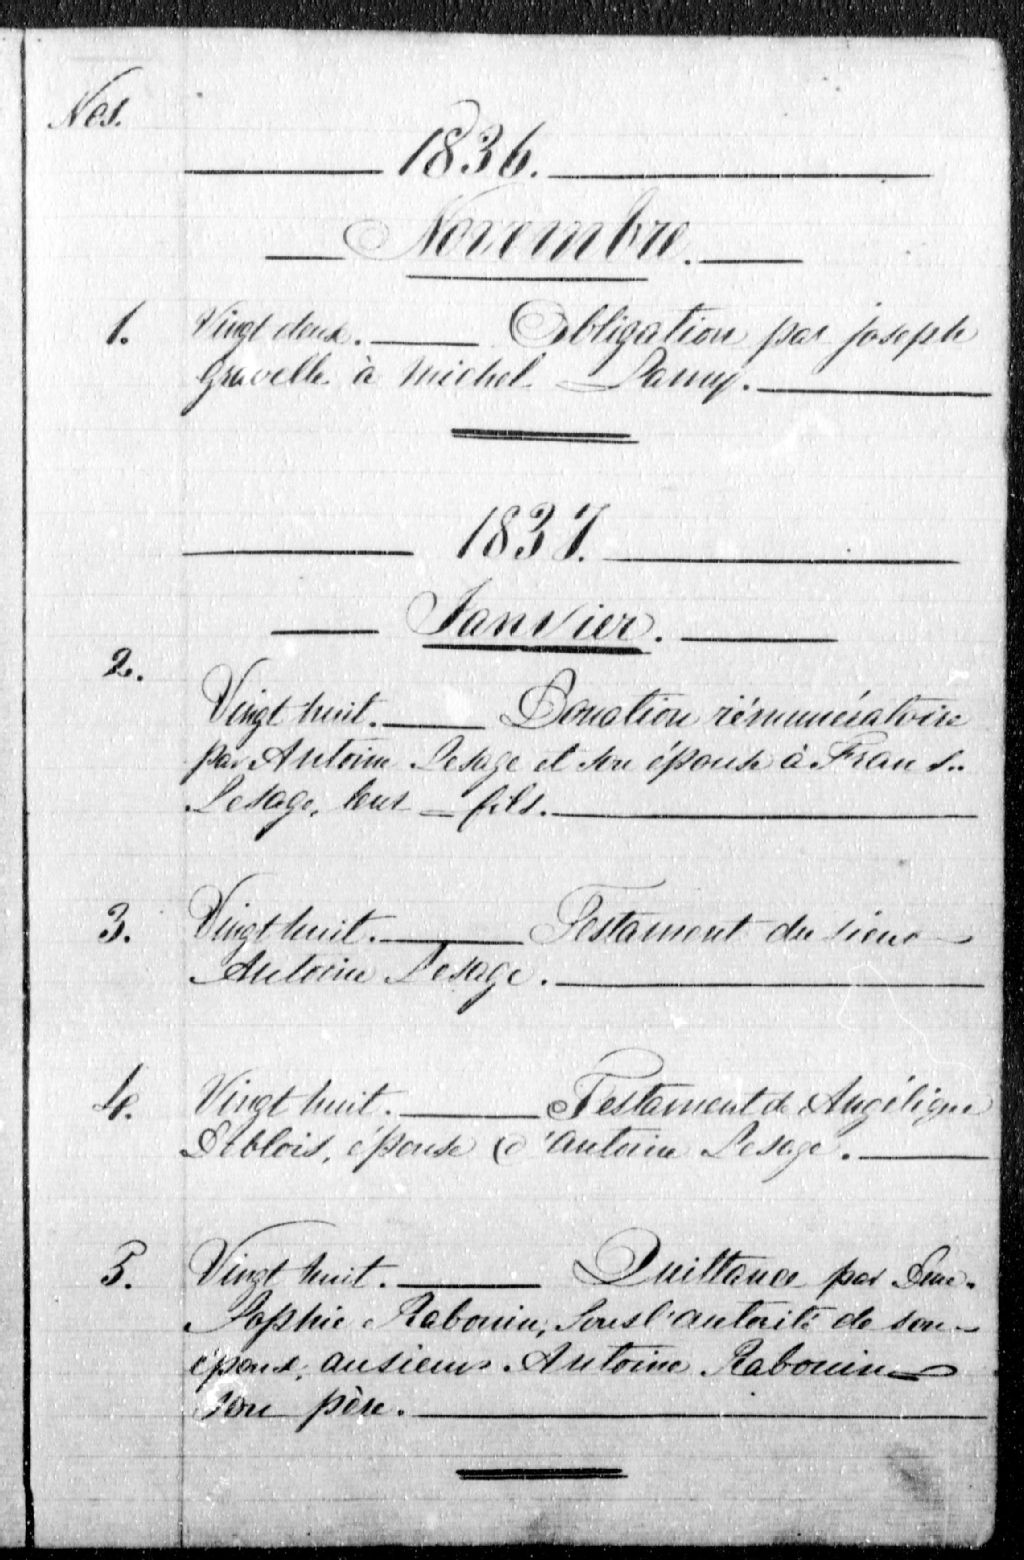 Nos.
1836.
Novembre.
1. Vingt deux. Obligation par joseph
Gravelle à Michel Lamy.
1837.
Janvier.
2.
Vingt huit. Donation rémunératoire
par Antoine Lesage et son épouse à Frans.
Lesage, leur fils.
3. Vingt huit. Testament du sieur
Antoine Lesage.
4. Vingt huit. Testament de Angélique
Deblois, épouse d'Antoine Lesage.
5. Vingt huit. Quittance par Dme.
Sophie Rabouin, sous l'autorité de son
époux, au sieur Antoine Rabouin
son père.